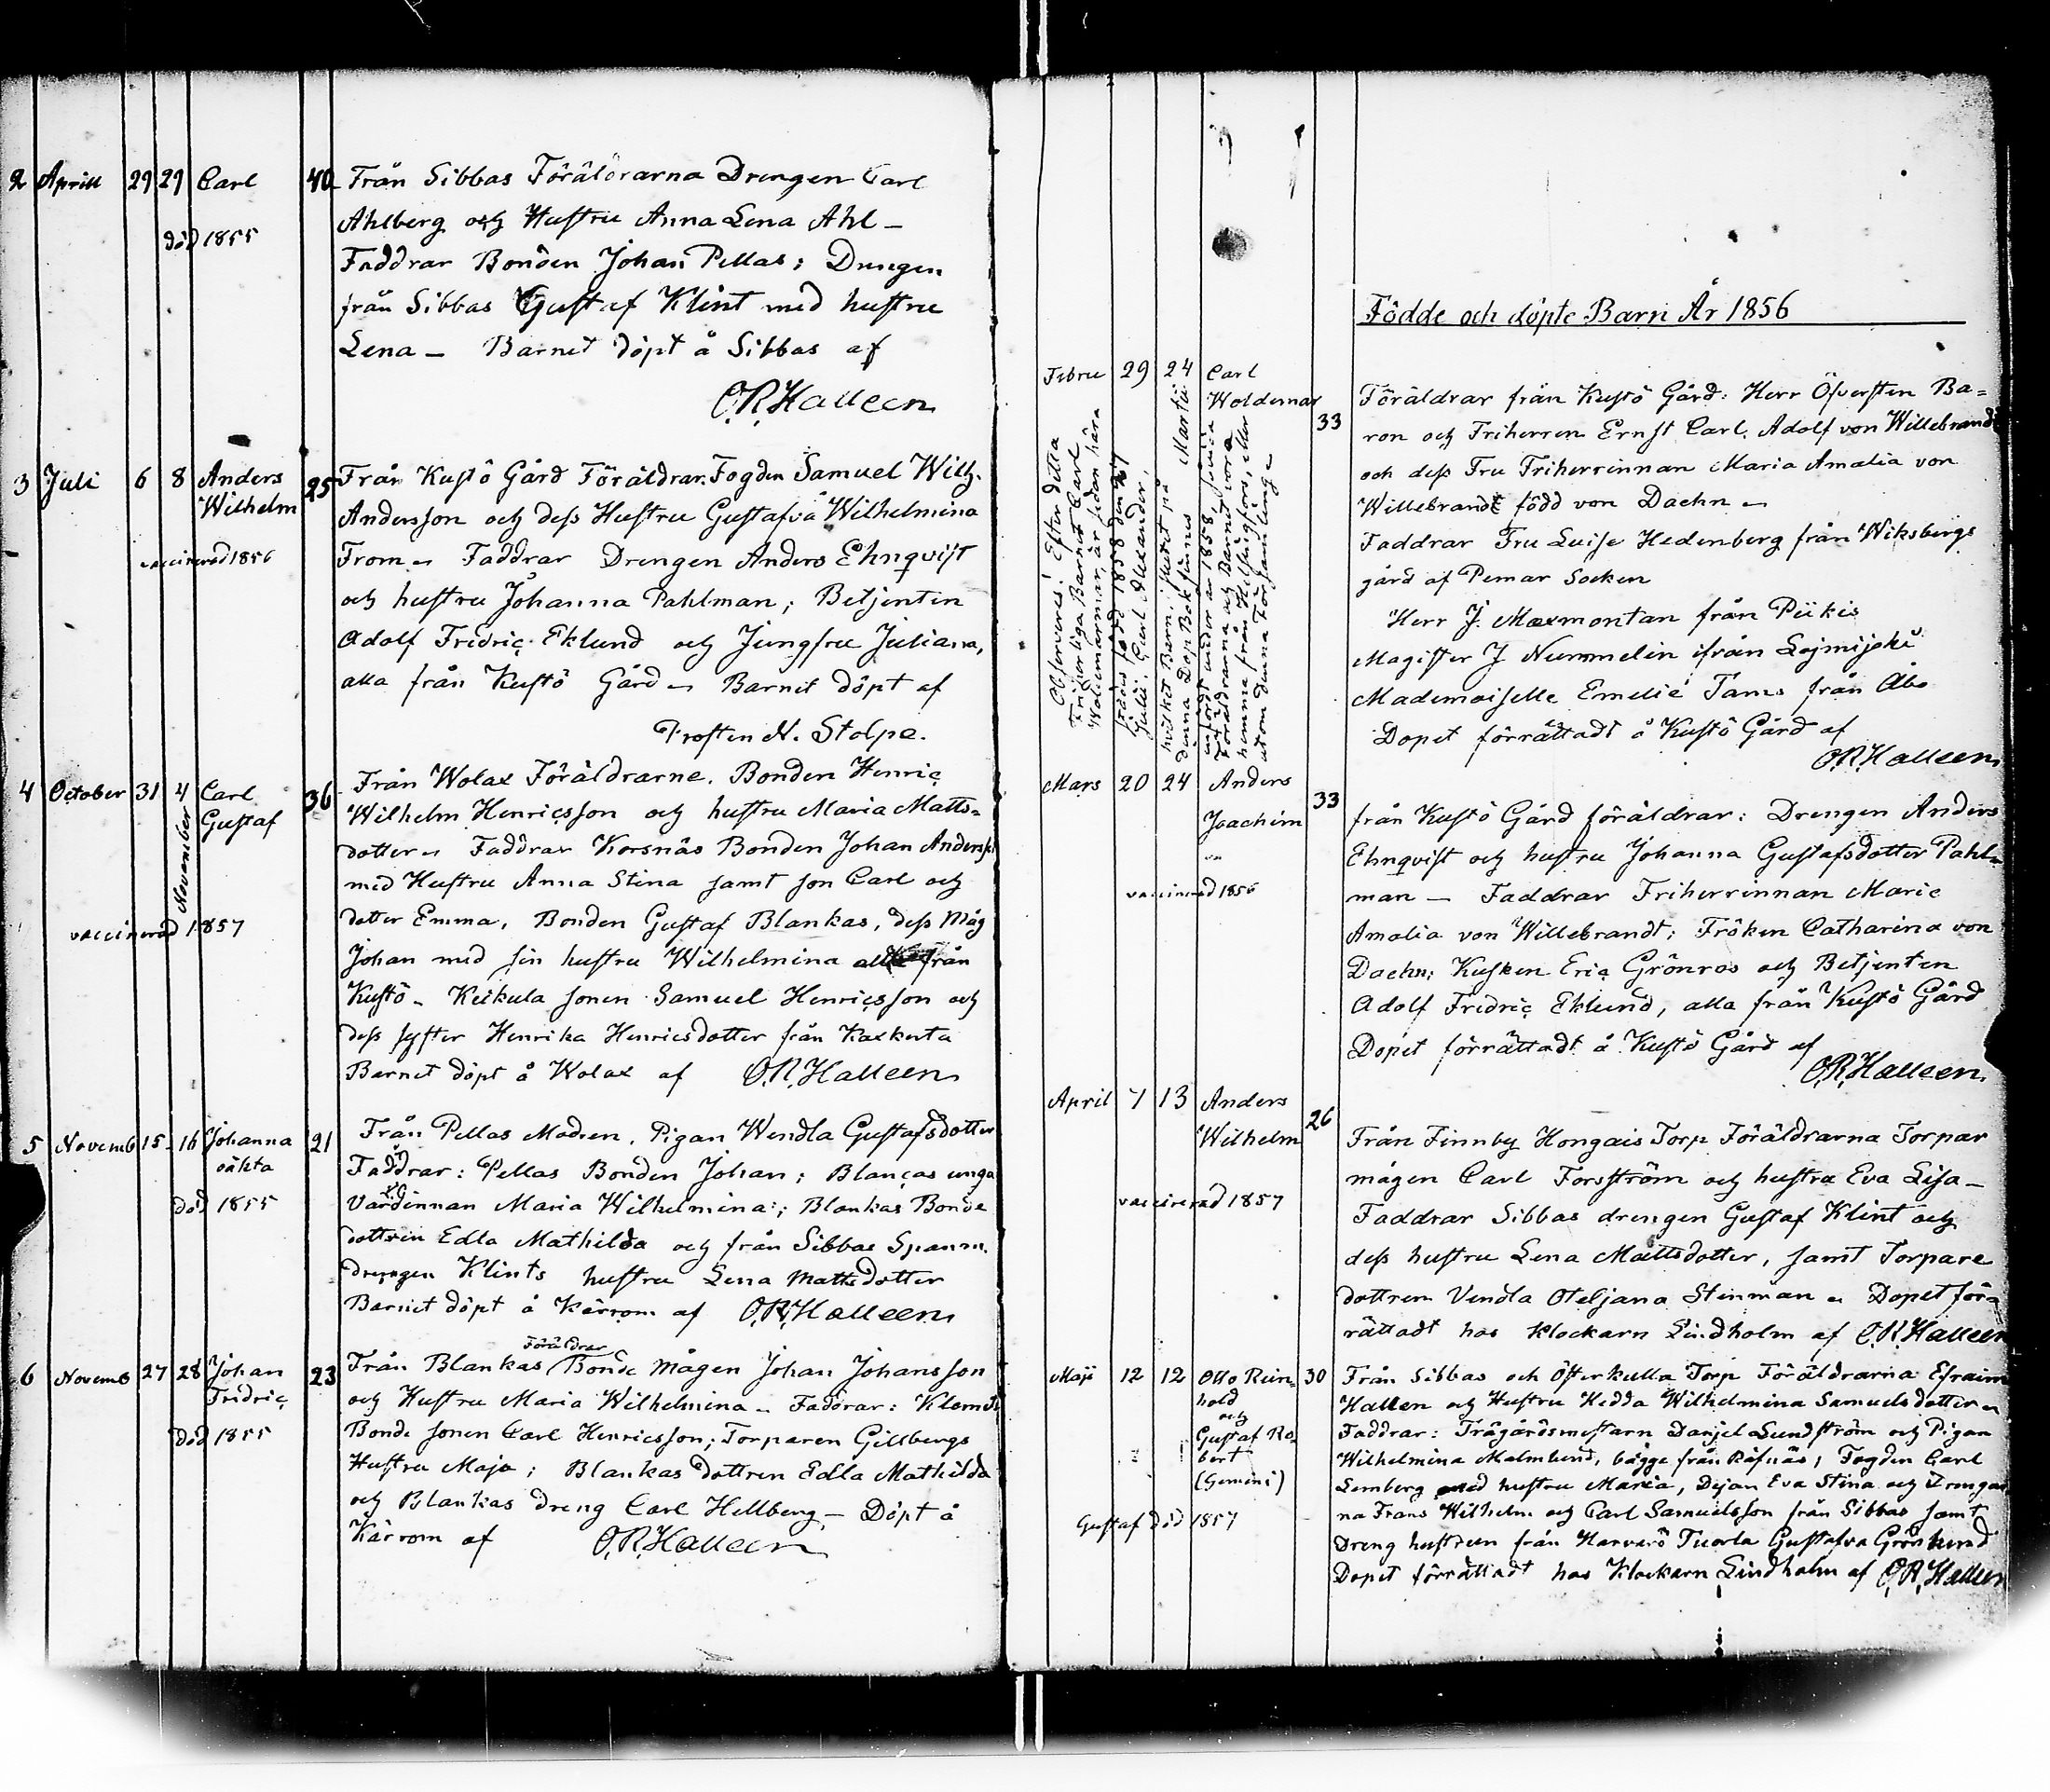 2 Aprill 29 29 Carl 40 Från Sibbas Föräldrarna Drengen Carl
Ahlberg och Hustru Anna Lena Ahl –
död 1855
Faddrar Bonden Johan Pellas; Drengen
från Sibbas Gustaf Klint med hustru
Lena – Barnet döpt å Sibbas af
O.R. Halleen
3 Juli 6 8 Anders Wilhelm 25 Från Kustö Gård Föräldrar. Fogden Samuel Wilh.
Andersson och dess Hustru Gustafva Wilhelmina
vaccinerad 1856
From – Faddrar Drengen Anders Ehnqvist
och hustru Johanna Pahlman; Betjenten
Adolf Fredric Eklund och Jungfru Juliana,
alla från Kustö Gård – Barnet döpt af
Prosten N. Stolpe.
4 October 31 4 November Carl Gustaf 36 Från Wolax Föräldrarne. Bonden Henric
Wilhelm Henricsson och hustru Maria Matts=
dotter – Faddrar Korsnäs Bonden Johan Anderss
med Hustru Anna Stina samt son Carl och
dotter Emma, Bonden Gustaf Blankas, dess Måg
vaccinerad 1857
Johan med sin hustru Wilhelmina från
Kustö – Keikula sonen Samuel Henricsson och
dess syster Henrika Henricsdotter från Kaxkerta
Barnet döpt å Wolax af O.R. Halleen
5 Novemb 15 16 Johanna oäkta 21 Från Pellas Modren. Pigan Wendla Gustafsdotter
Faddrar: Pellas Bonden Johan; Blancas unga
död 1855
Värdinnan Maria Wilhelmina; Blankas Bonde
dottren Edla Mathilda och från Sibbas Spanm.
drengen Klints hustru Lena Mattsdotter
Barnet döpt å Kärrom af O.R. Halleen
6 Novemb 27 28 Johan Fridric 23 Från Blankas Föräldrar Bonde Mågen Johan Johansson
och Hustru Maria Wilhelmina – Faddrar: Klemets
död 1855
Bonde sonen Carl Henricsson; Torparen Gillbergs
Hustru Maja; Blankas dottren Edla Mathilda
och Blankas dreng Carl Hellberg – Döpt å
Kärrom af O.R. Halleen
Födde och döpte Barn År 1856
Febru 29 24 Martii Carl Woldemar 33
Föräldrar från Kustö Gård: Herr Öfversten Ba=
ron och Friherren Ernst Carl. Adolf von Willebrandt
och dess Fru Friherrinnan Maria Amalia von
Willebrandt född von Daehn –
Faddrar Fru Luise Hedenberg från Wiksbergs
gård af Pemar Socken
Herr J. Maxmontan från Piikis
Magister J Nummelin ifrån Lojmijoki
Mademoiselle Emelie Tams från Åbo
Dopet förrättadt å Kustö Gård af
O.R. Halleen
Observeras! Efter detta
Friherrliga Barnet Carl
Woldemarmar, är sedan hära
födöis född 1858 den 27
Julii: Carl Alexander,
hvilket Barn, slutet på
denna Dop Bok finnes
infördt under år 1858,
Föräldrarna och Barnet vora
hemma från Helsingfors, eller
utom denna Församling –
Mars 20 24 Anders Joachim 33
från Kustö Gård föräldrar: Drengen Anders
Ehnqvist och hustru Johanna Gustafsdotter Pahl=
vaccinerad 1856
man – Faddrar Friherrinnan Marie
Amalia von Willebrandt; Fröken Catharina von
Daehn; Kusken Eric Grönroos och Betjenten
Adolf Fridric Eklund, alla från Kustö Gård
Dopet förrättadt å Kustö Gård af
O.R. Halleen.
April 7 13 Anders Wilhelm 26
Från Finnby Hongais Torp Föräldrarna Torpar
mågen Carl Forsström och hustru Eva Lisa –
vaccinerad 1857
Faddrar Sibbas drengen Gustaf Klint och
dess hustru Lena Mattsdotter, samt Torpare
dottren Vendla Oteljana Stenman – Dopet för=
rättadt hos Klockarn Lindholm af O.R. Halleen
Maji 12 12 Otto Rein=hold och Gustaf Ro=bert (Gemini) 30 Från Sibbas och Österkulla Torp Föräldrarna Efraim
Hallen och Hustru Hedda Wilhelmina Samuelsdotter –
Faddrar: Trägårdsmestarn Danjel Lundström och Pigan
Wilhelmina Malmlund, bägge från Råfnäs; Fogden Carl
Lemberg med hustru Maria, Dejan Eva Stina och Drengar
na Frans Wilhelm och Carl Samuelsson från Sibbas samt
Gustaf död 1857
Dreng hustrun från Harvarö Tuorla Gustafva Grönlund
Dopet förrättadt hos Klockarn Lindholm af O.R. Halleen